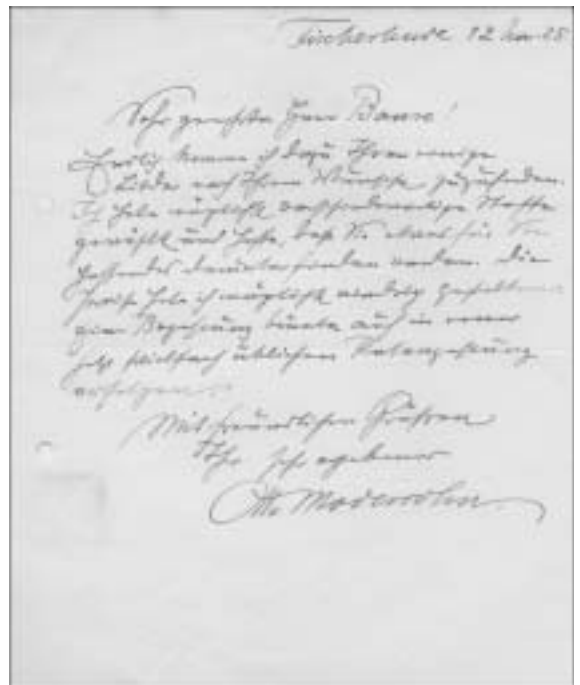 Fischerhude 12 Nov. 25
Sehr geehrter Herr Banse!
Endlich komme ich dazu Ihnen einige
Bilder nach Ihrem Wunsche zuzusenden.
Ich habe möglichst verschiedenartige Stoffe
gewählt und hoffe, daß Sie etwas für Sie
Passendes darunter finden werden. Die
Preise habe ich möglichst niedrig gehalten
Bezahlung könnte auch in
jetzt vielfach üblichen Ratenzahlung
erfolgen.
Mit freundlichen Grüßen
Ihr sehr ergebener
Otto Modersohn